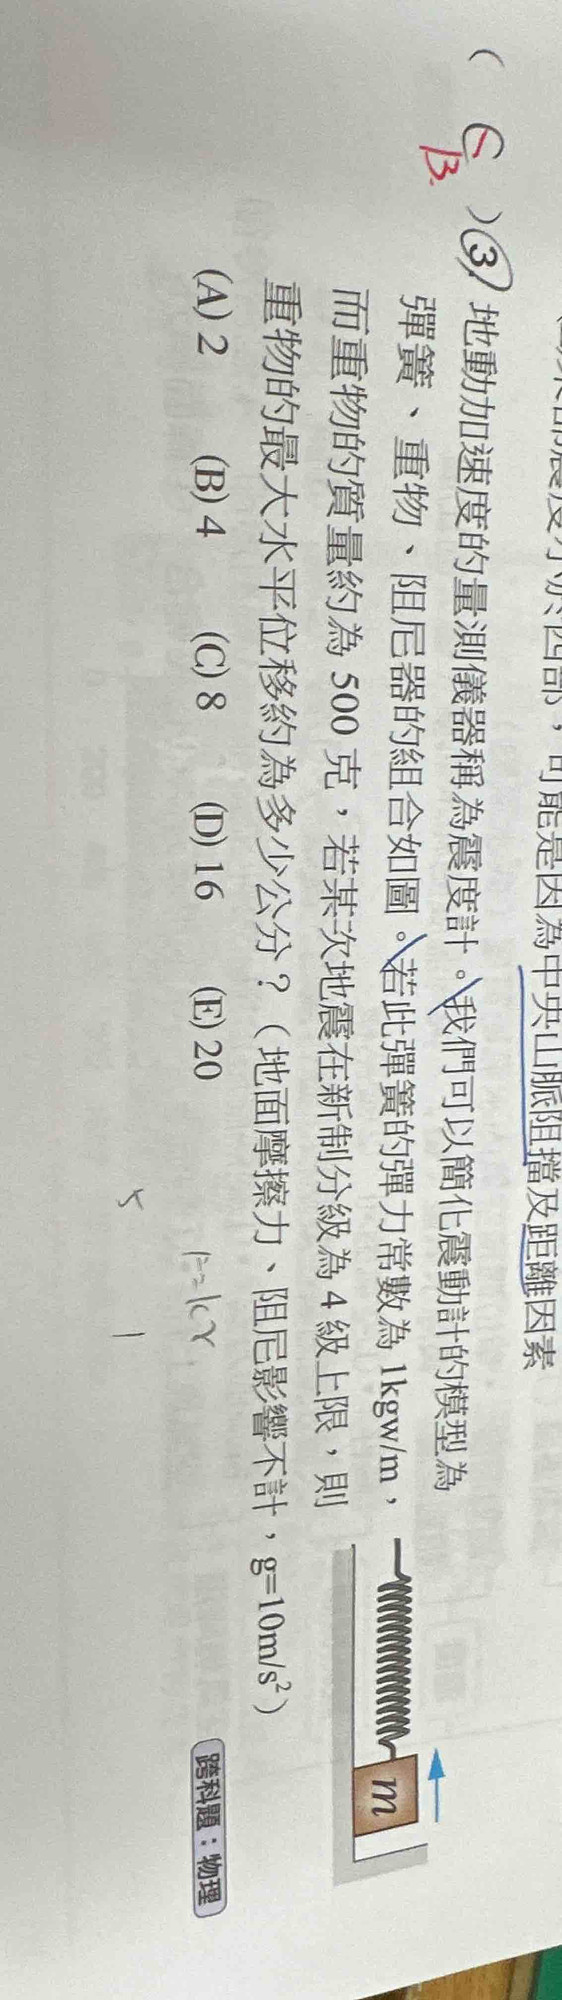 可能是因為中央山脈阻擋及距離因素
( C )③ 地動加速度的量測儀器稱為震度計。我們可以簡化震動計的模型為
B.
彈簧、重物、阻尼器的組合如圖。若此彈簧的彈力常數為 1kgw/m，
而重物的質量約為 500 克，若某次地震在新制分級為 4 級上限，則
重物的最大水平位移約為多少公分？（地面摩擦力、阻尼影響不計，g=10m/s²）
m
(A) 2 (B) 4 (C) 8 (D) 16 (E) 20
跨科題：物理
F=kx